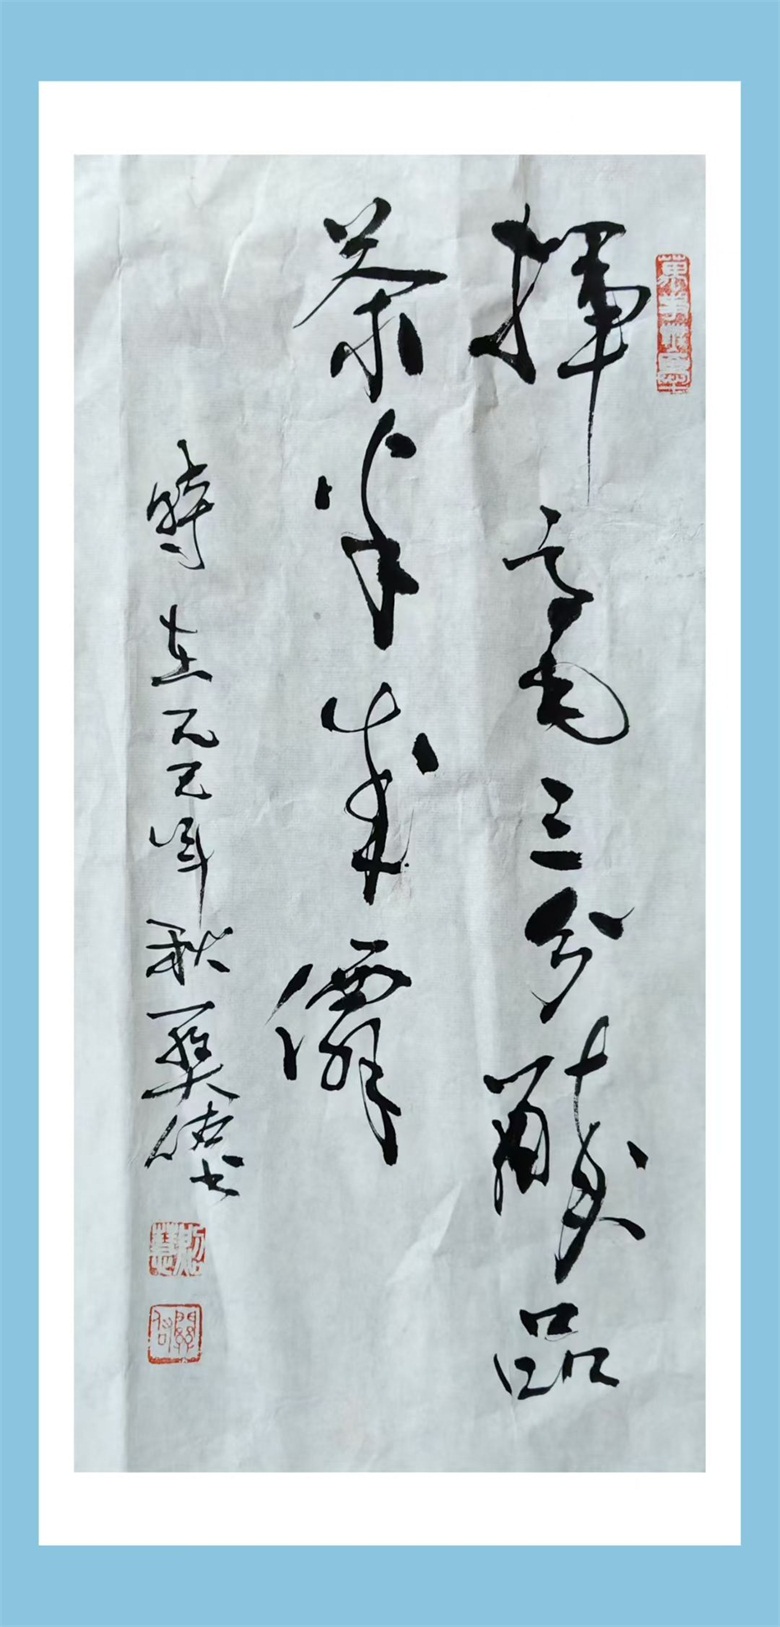 揮毫三分醉品
茶半成僊
時在乙巳年秋